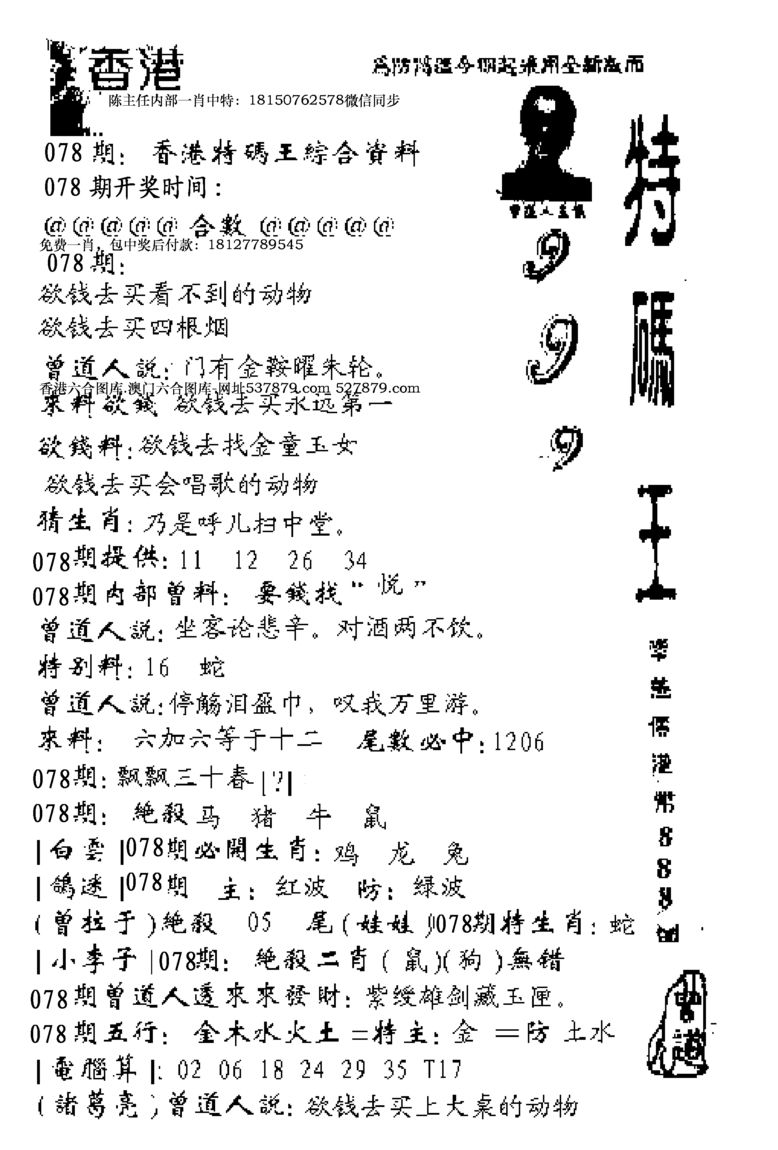 香港
為防混淆今期起採用全新版面
陈主任内部一肖中特：18150762578微信同步
078期：香港特碼王綜合資料
078期开奖时间：
@@@@@ 合數 @@@@@
免费一肖，包中奖后付款：18127789545
078期：
欲钱去买看不到的动物
欲钱去买四根烟
曾道人説：门有金鞍曜朱轮。
香港六合图库-澳门六合图库-网址537879.com 527879.com
來料欲錢 欲钱去买永远第一
欲錢料：欲钱去找金童玉女
欲钱去买会唱歌的动物
猜生肖：乃是呼儿扫中堂。
078期提供：11 12 26 34
078期内部曾料：要錢找“悦”
曾道人説：坐客论悲辛。对酒两不饮。
特别料：16 蛇
曾道人説：停觞泪盈巾，叹我万里游。
來料：六加六等于十二 尾数必中：1206
078期：飘飘三十春|?|
078期：絶殺 马 猪 牛 鼠
|白雲|078期必開生肖：鸡 龙 兔
|鴿迷|078期 主：红波 防：绿波
(曾拉于)絶殺 05 尾(娃娃)078期特生肖：蛇
|小李子|078期：絶殺二肖(鼠)(狗)無错
078期曾道人透來來發財：紫绶雄剑藏玉匣。
078期五行：金木水火土=特主：金 =防 土水
|電腦算|：02 06 18 24 29 35 T17
(諸葛亮)曾道人説：欲钱去买上大桌的动物
特碼王
999
港幣888
曾道